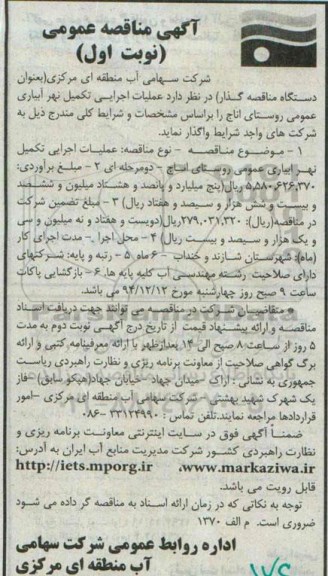 آگهی مناقصه عمومی
(نوبت اول)
شرکت سهامی آب منطقه ای مرکزی(بعنوان
دستگاه مناقصه گذار) در نظر دارد عملیات اجرایی تکمیل نهر آبیاری
عمومی روستای اناج را براساس مشخصات و شرایط کلی مندرج ذیل به
شرکت های واجد شرایط واگذار نماید.
۱ - موضوع مناقصه - نوع مناقصه: عملیات اجرایی تکمیل
نهر آبیاری عمومی روستای اناج - دومرحله ای ۲ - مبلغ برآوردی:
۵,۵۸۰,۶۲۶,۳۷۰ ریال(پنج میلیارد و پانصد و هشتاد میلیون و ششصد
و بیست و شش هزار و سیصد و هفتاد ریال) ۳ - مبلغ تضمین شرکت
در مناقصه(ریال): ۲۷۹,۰۳۱,۳۲۰ریال(دویست و هفتاد و نه میلیون و سی
و یک هزار و سیصد و بیست ریال) ۴ - محل اجرا - مدت اجرای کار
(ماه): شهرستان شازند و خنداب - ۶ ماه ۵ - رتبه و پایه: شرکتهای
دارای صلاحیت رشته مهندسی آب کلیه پایه ها. ۶ - بازگشایی پاکات
ساعت ۹ صبح روز چهارشنبه مورخ ۹۴/۱۲/۱۲ می باشد.
متقاضیان شرکت در مناقصه می توانند جهت دریافت اسناد
مناقصه و ارائه پیشنهاد قیمت از تاریخ درج آگهی نوبت دوم به مدت
۵ روز از ساعت ۸ صبح الی ۱۴ بعدازظهر با ارائه معرفینامه کتبی و ارائه
برگ گواهی صلاحیت از معاونت برنامه ریزی و نظارت راهبردی ریاست
جمهوری به نشانی : اراک - میدان جهاد- خیابان جهاد(هپکو سابق) -فاز
یک شهرک شهید بهشتی - شرکت سهامی آب منطقه ای مرکزی -امور
قراردادها مراجعه نمایند.تلفن تماس : ۳۳۱۲۴۹۹۰-۰۸۶
ضمناً آگهی فوق در سایت اینترنتی معاونت برنامه ریزی و
نظارت راهبردی کشور شرکت مدیریت منابع آب ایران به آدرس:
www.markaziwa.ir، http://iets.mporg.ir
قابل رویت می باشد.
توجه به نکاتی که در زمان ارائه اسناد به مناقصه گر داده می شود
ضروری است. م الف ۱۳۷۰
اداره روابط عمومی شرکت سهامی
آب منطقه ای مرکزی